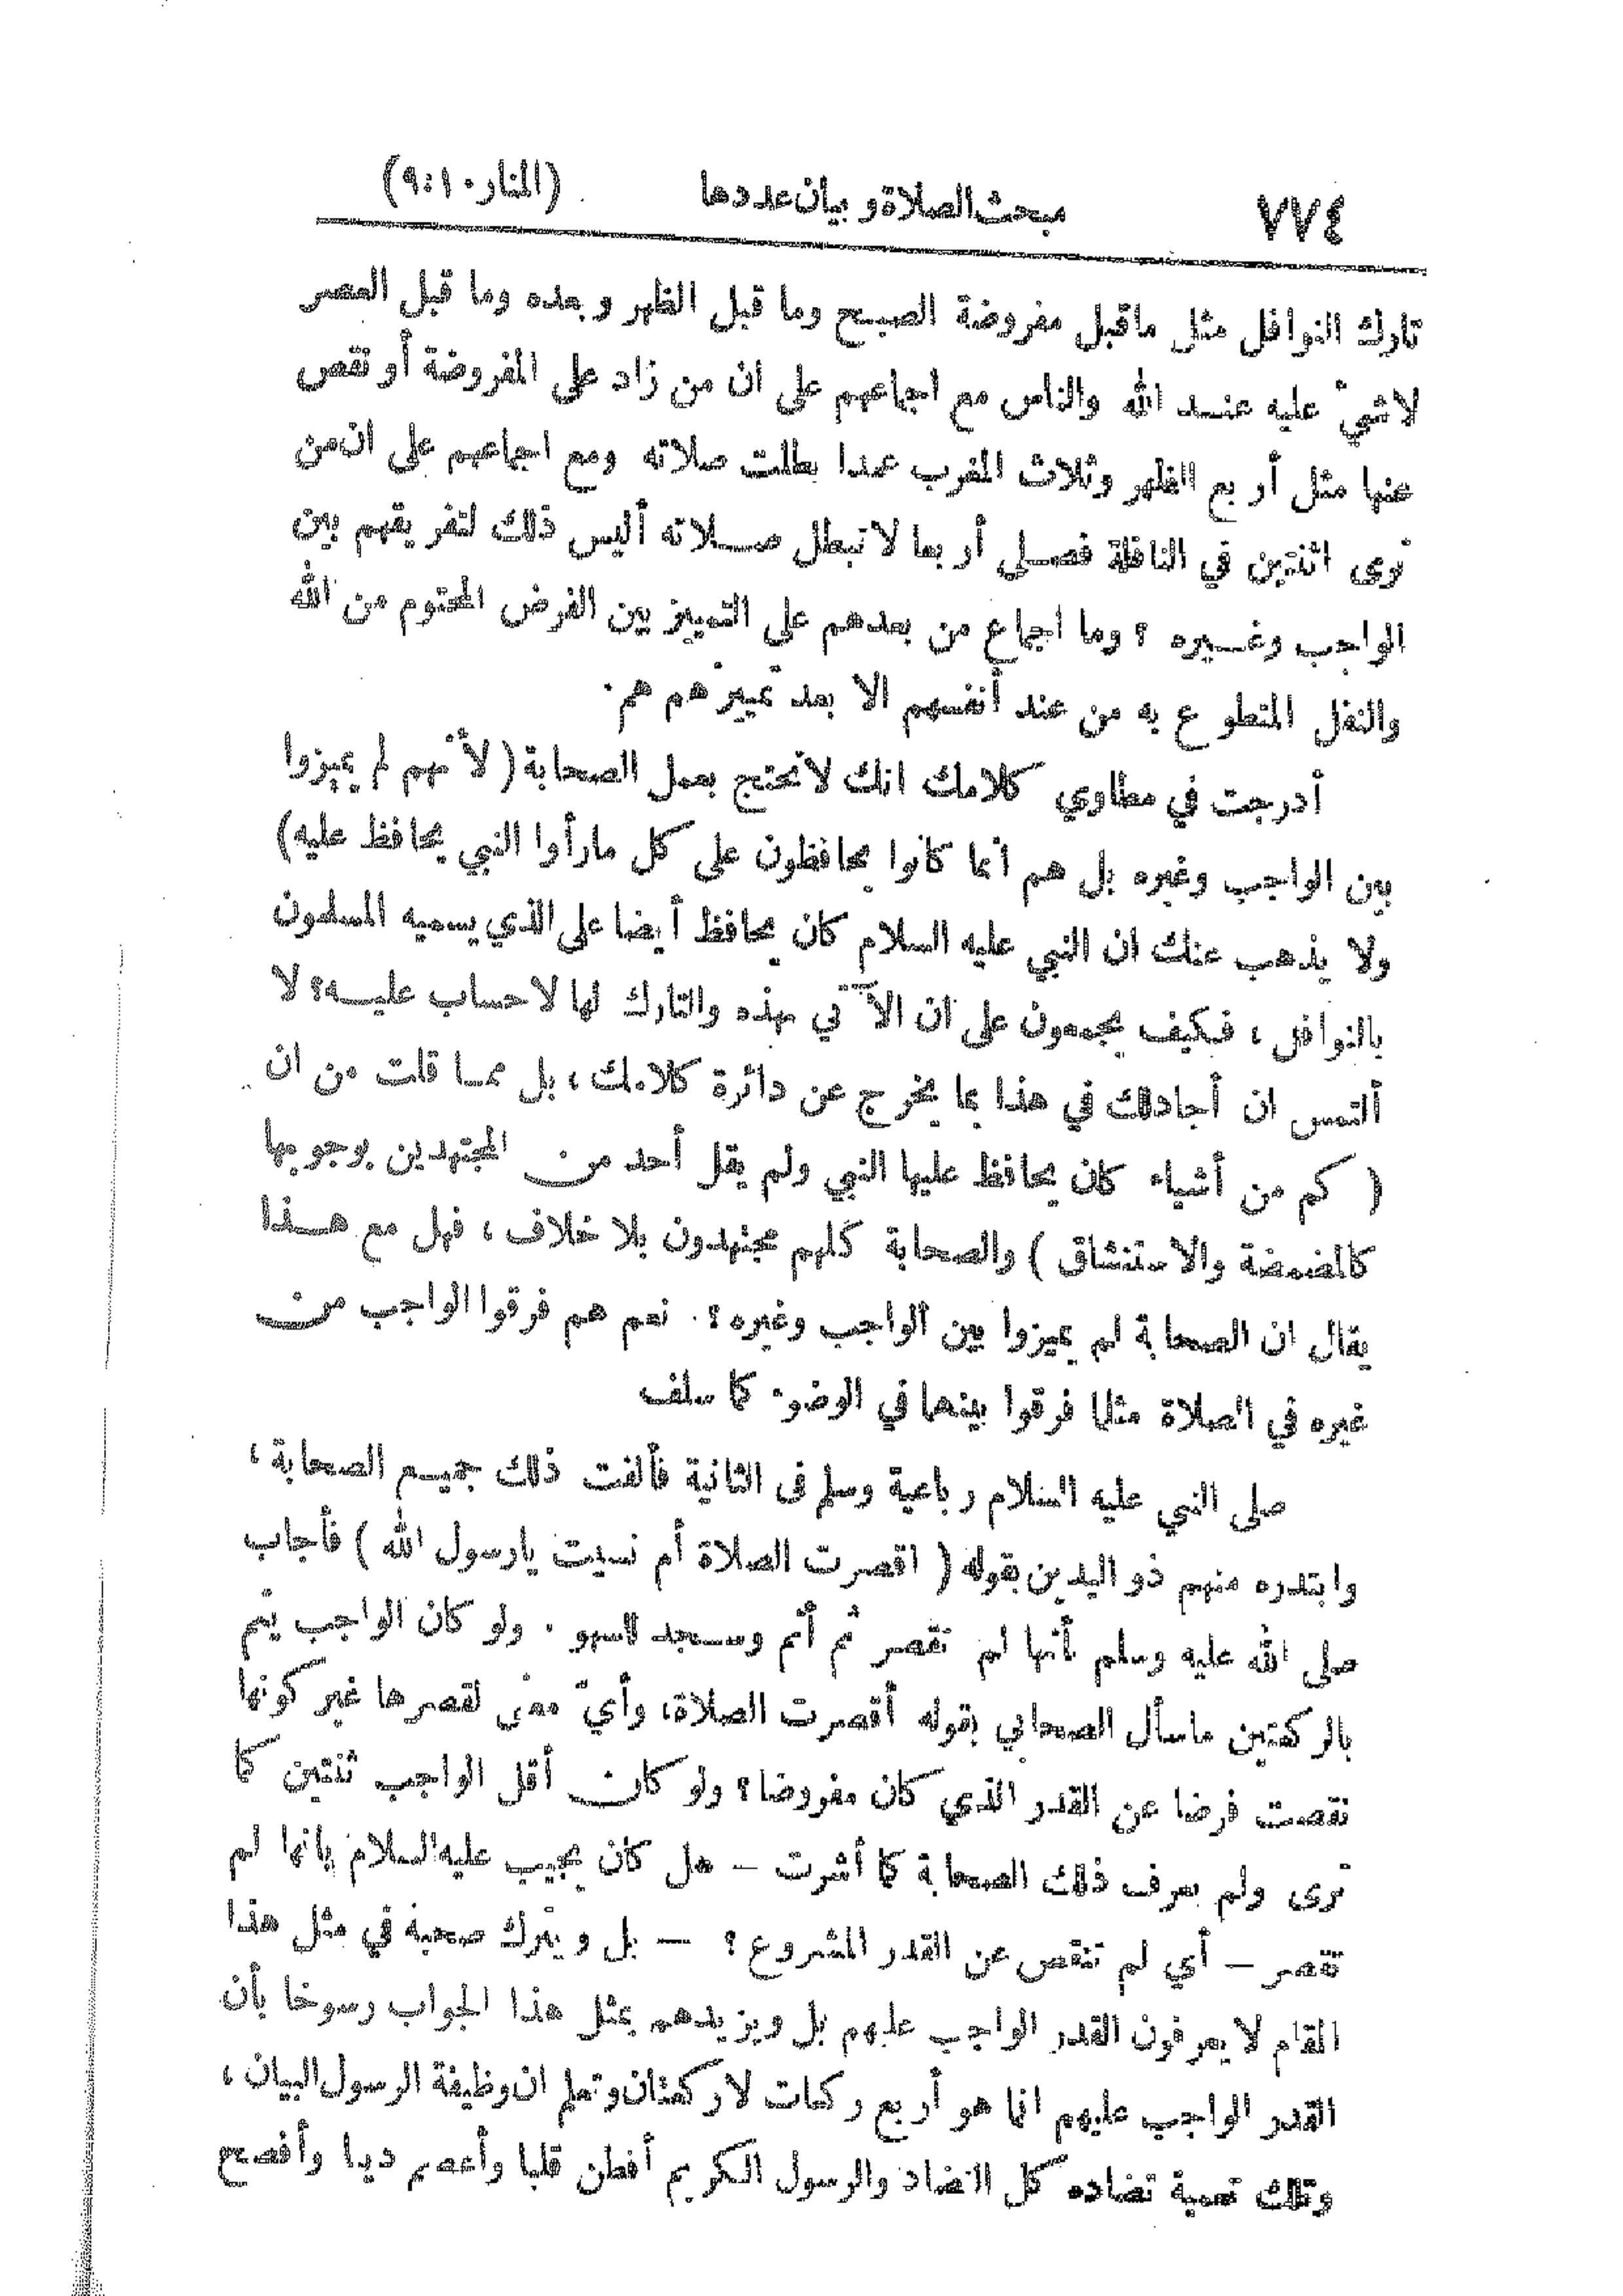 ٧٧٤ مبحث الصلاة وبيان عددها (المنار ١٠:٩)
تارك النوافل مثل ماقبل مفروضة الصبح وما قبل الظهر وبعده وما قبل العصر
لاشيء عليه عند الله والناس مع اجماعهم على ان من زاد على المفروضة أو نقص
عنها مثل أربع الظهر وثلاث المغرب عمدا بطلت صلاته ومع اجماعهم على ان من
نوى اثنتين في النافلة فصلى أربعا لا تبطل صلاته أليس ذلك لتفريقهم بين
الواجب وغيره ؟ وما اجماع من بعدهم على التمييز بين الفرض المحتوم من الله
والنفل المتطوع به من عند أنفسهم الا بعد تمييزهم هم.
أدرجت في مطاوي كلامك انك لاتحتج بعمل الصحابة ( لأنهم لم يميزوا
بين الواجب وغيره بل هم انما كانوا يحافظون على كل مارأوا النبي يحافظ عليه)
ولا يذهب عنك ان النبي عليه السلام كان يحافظ أيضا على الذي يسميه المسلمون
بالنوافل ، فكيف يجمعون على ان الآتي بهذه والتارك لها لا حساب عليه؟ لا
ألتمس ان أجادلك في هذا بما يخرج عن دائرة كلامك ، بل مما قلت من ان
( كم من أشياء كان يحافظ عليها النبي ولم يقل أحد من المجتهدين بوجوبها
كالمضمضة والاستنشاق ) والصحابة كلهم مجتهدون بلا خلاف ، فهل مع هذا
يقال ان الصحابة لم يميزوا بين الواجب وغيره ؟. نعم هم فرقوا الواجب من
غيره في الصلاة مثلما فرقوا بينهما في الوضوء كما سلف
صلى النبي عليه السلام رباعية وسلم في الثانية فألفت ذلك جميع الصحابة ،
وابتدره منهم ذو اليدين بقوله ( اقصرت الصلاة أم نسيت يارسول الله ) فأجاب
صلى الله عليه وسلم بأنها لم تقصر ثم أتم وسجد للسهو . ولو كان الواجب يتم
بالركعتين ماسأل الصحابي بقوله أقصرت الصلاة، وأيّ معنى لقصرها غير كونها
نقصت فرضا عن القدر الذي كان مفروضا؟ ولو كان أقل الواجب ثنتين كما
ترى ولم يعرف ذلك الصحابة كما أشرت – هل كان يجيب عليه السلام بانها لم
تقصر – أي لم تنقص عن القدر المشروع ؟ – بل ويترك صحبه في مثل هذا
المقام لا يعرفون القدر الواجب عليهم بل ويزيدهم بمثل هذا الجواب رسوخا بأن
القدر الواجب عليهم انما هو أربع ركعات لاركعتان وتعلم ان وظيفة الرسول البيان ،
وتلك تعمية تضاده كل التضاد والرسول الكريم أفطن قلبا وأعصم دينا وأفصح